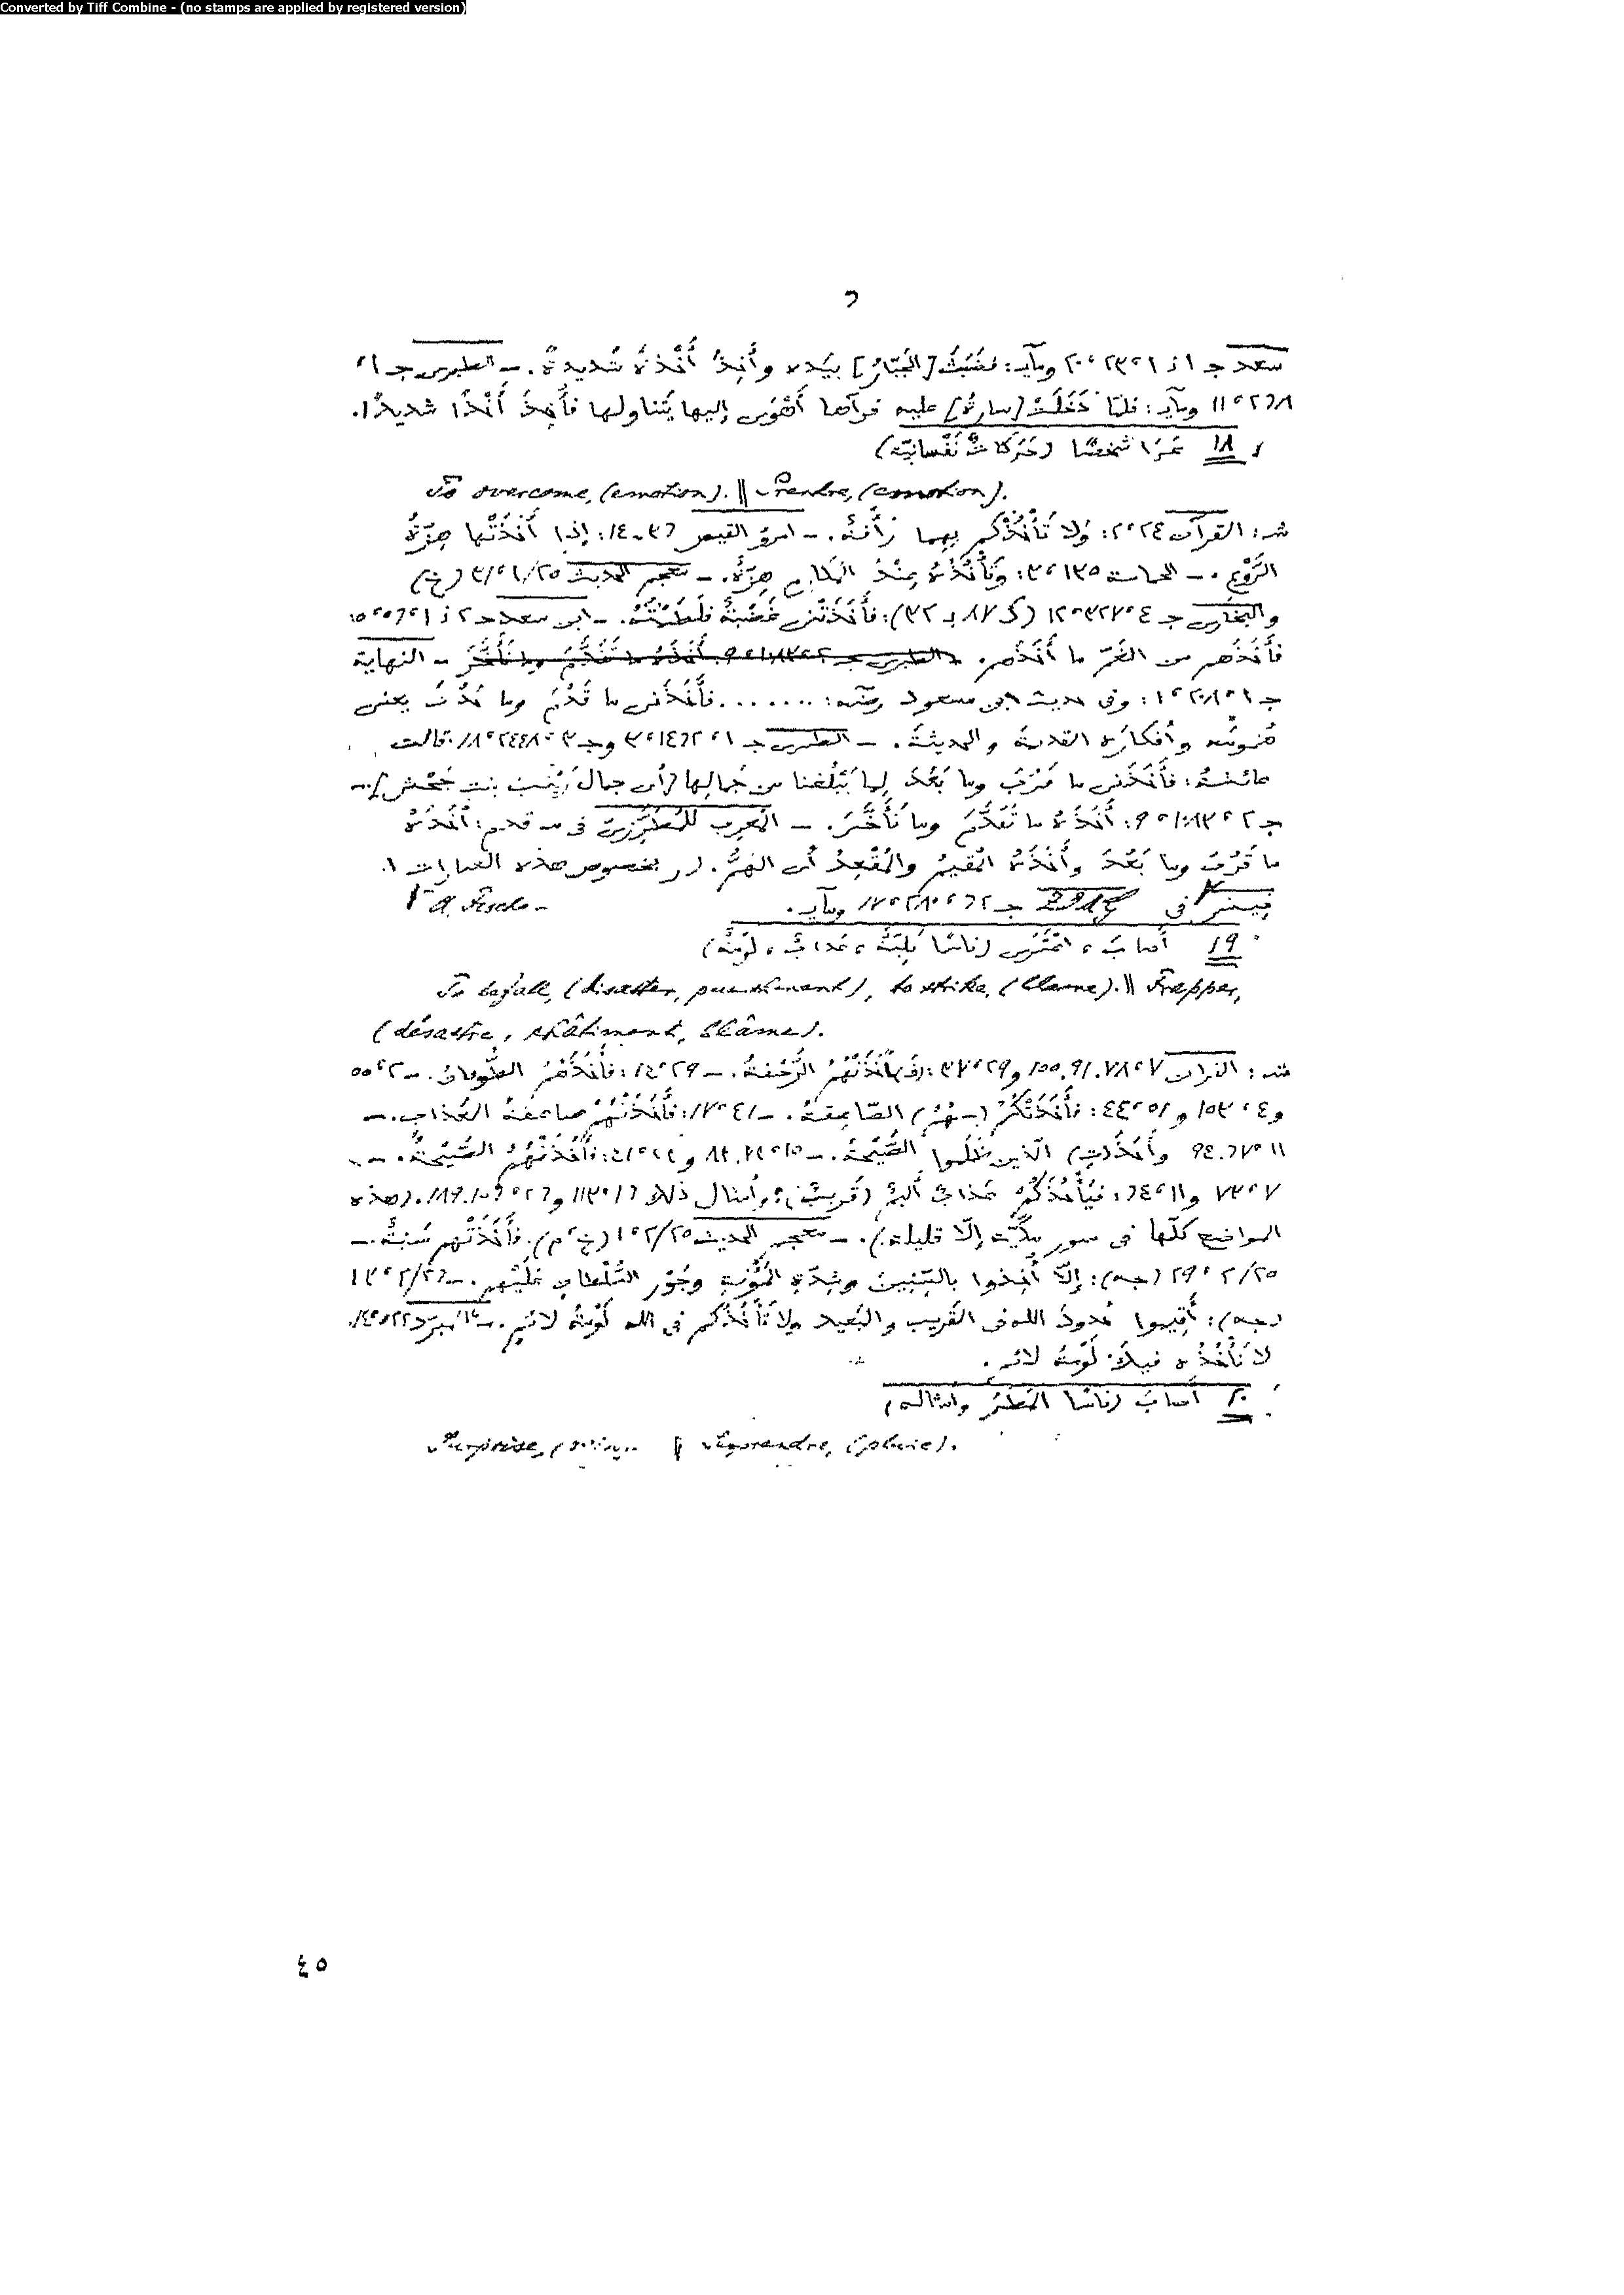 Converted by Tiff Combine - (no stamps are applied by registered version)
٦
سعد جـ ١ ز ١، ٢٣، ٢٠ ومآبـ: فضَبَثَ [الجَبّارُ] بيَدِه وأُخِذَ أَخْذةً شَديدةً. ــ الطبرى جـ ١،
٢٦٨، ١١ ومآبـ: فلمّا دَخَلَتْ [سارةُ] عليه فرآها أَهْوَى إليها يَتَناولها فأُخِذَ أَخْذًا شديدًا.
١٨ عَرَا شخصًا (حَرَكاتٌ نَفْسانيّة)
To overcome, (emotion). || Prendre, (emotion).
شـ: القرآن ٢٤، ٢: ولا تَأْخُذْكم بِهِما رَأْفةٌ. ــ امرؤ القيس: إذا أَخَذَتْها هِزّةُ
الرَّوْعِ. ــ الحماسة: وَتَأْخُذُهُ عِنْدَ المكارِمِ هِزّةٌ. ــ معجم الحديث (خ)
والبخارى جـ ٤: فأَخَذَتْنى غَضْبةٌ فلَطَمْتُهُ. ــ ابن سعد جـ ٢ ز ١
فأَخَذَهم من الغَمّ ما أَخَذَهم. ــ الطبرى أَخَذَهُ ما تَقَدَّمَ وما تَأَخَّرَ ــ النهاية
جـ ١: وفى حديث ابن مسعود رضّه: ....... فأَخَذَنى ما قَدُمَ وما حَدُثَ يعنى
حُزونَه وأفكارَه القديمة والحديثة. ــ الطبرى جـ ١ وجـ ٣: قالت
عائشةُ: فأَخَذَنى ما قَرُبَ وما بَعُدَ لِما يَبْلُغنا من جَمالِها [أى جمال زَيْنَب بنت جَحْش]. ــ
جـ ٢: أَخَذَهُ ما تَقَدَّمَ وما تَأَخَّرَ. ــ المُغرب للمُطَرِّزىّ فى مـ قدم: أَخَذَهُ
ما قَرُبَ وما بَعُدَ وأَخَذَهُ المُقيمُ والمُقْعِدُ أى الهَمُّ. (ر بخصوص هذه العبارات ا.
فيشر فى جـ ومآبـ.
A. Fische
١٩ أصابَ، اعْتَرَى (ناسًا بَلِيّةٌ، عَذابٌ، لَوْمةٌ)
To befall, (disaster, punishment), to strike, (blame). || Frapper,
(désastre, châtiment, blâme).
شـ: القرآن ٧، ٧٨. ٩١. ١٥٥ و ٢٩، ٣٧: (فَـ)أَخَذَتْهُمُ الرَّجْفةُ. ــ ٢٩، ١٤: فأَخَذَهُمُ الطُّوفانُ. ــ ٢، ٥٥
و ٤، ١٥٣ و ٥١، ٤٤: فأَخَذَتْكُمُ (ـهُمُ) الصّاعِقةُ. ــ ٤١، ١٧: فأَخَذَتْهُمْ صاعِقةُ العَذابِ. ــ
١١، ٦٧. ٩٤ وأَخَذَ(تِ) الّذين ظَلَموا الصَّيْحةُ. ــ ١٥، ٧٣. ٨٣ و ٢٣، ٤١: فأَخَذَتْهُمُ الصَّيْحةُ. ــ
٧، ٧٣ و ١١، ٦٤: فيَأْخُذَكُمْ عَذابٌ أليمٌ (قَريبٌ)؛ وأمثال ذلك ١٦، ١١٣ و ٢٦، (هذه
المواضع كلّها فى سور مكّيّة إلّا قليلة). ــ معجم الحديث (خ، م). فأَخَذَتْهم سَنةٌ. ــ
(جه): إلّا أُخِذوا بالسِّنينَ وشِدّةِ المَؤُنةِ وجَوْر السُّلْطانِ عَلَيْهِم. ــ
(جه): أَقيموا حُدودَ الله فى القَريب والبَعيد ولا تَأْخُذْكم فى الله لَوْمةُ لائمٍ. ــ المبرّد
لا تَأْخُذُه فيك لَوْمةُ لائمٍ.
٢٠ أصابَ (ناسًا المَطَرُ وأمثاله)
Surprise, || Surprendre, (pluie).
٤٥